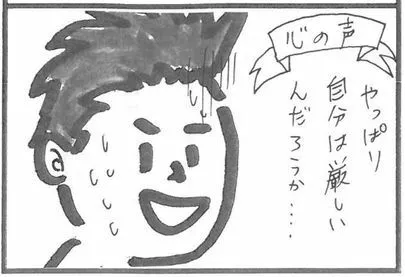 心の声
やっぱり
自分は厳しい
んだろうか‥‥